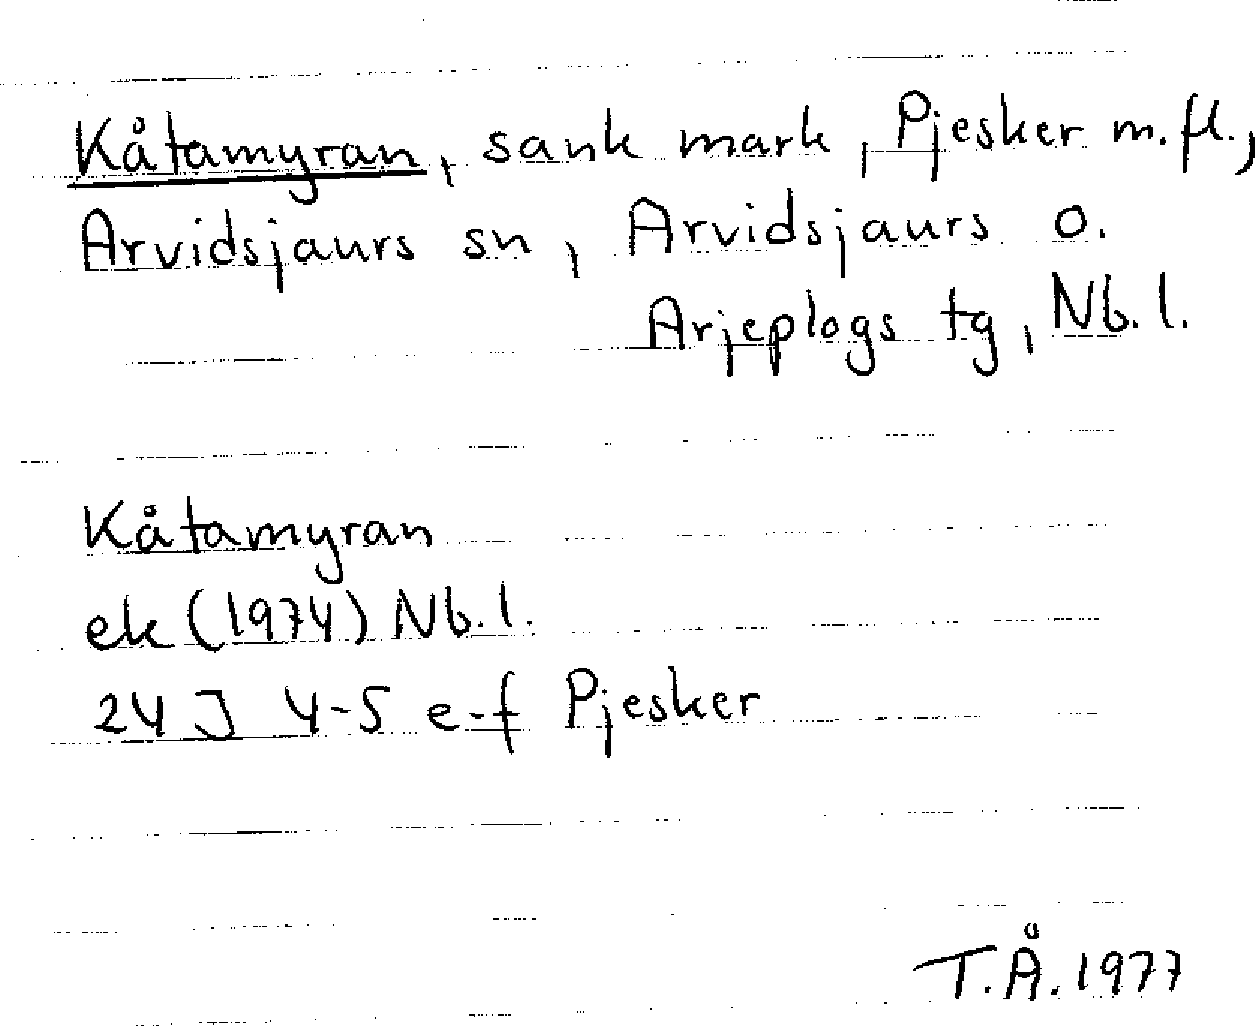 Kåtamyran, sank mark, Pjesker m.fl.,
Arvidsjaurs sn, Arvidsjaurs o.
Arjeplogs tg, Nb.l.
Kåtamyran
ek (1974) Nb.l.
24 J 4-5 e-f Pjesker
T.Å. 1977